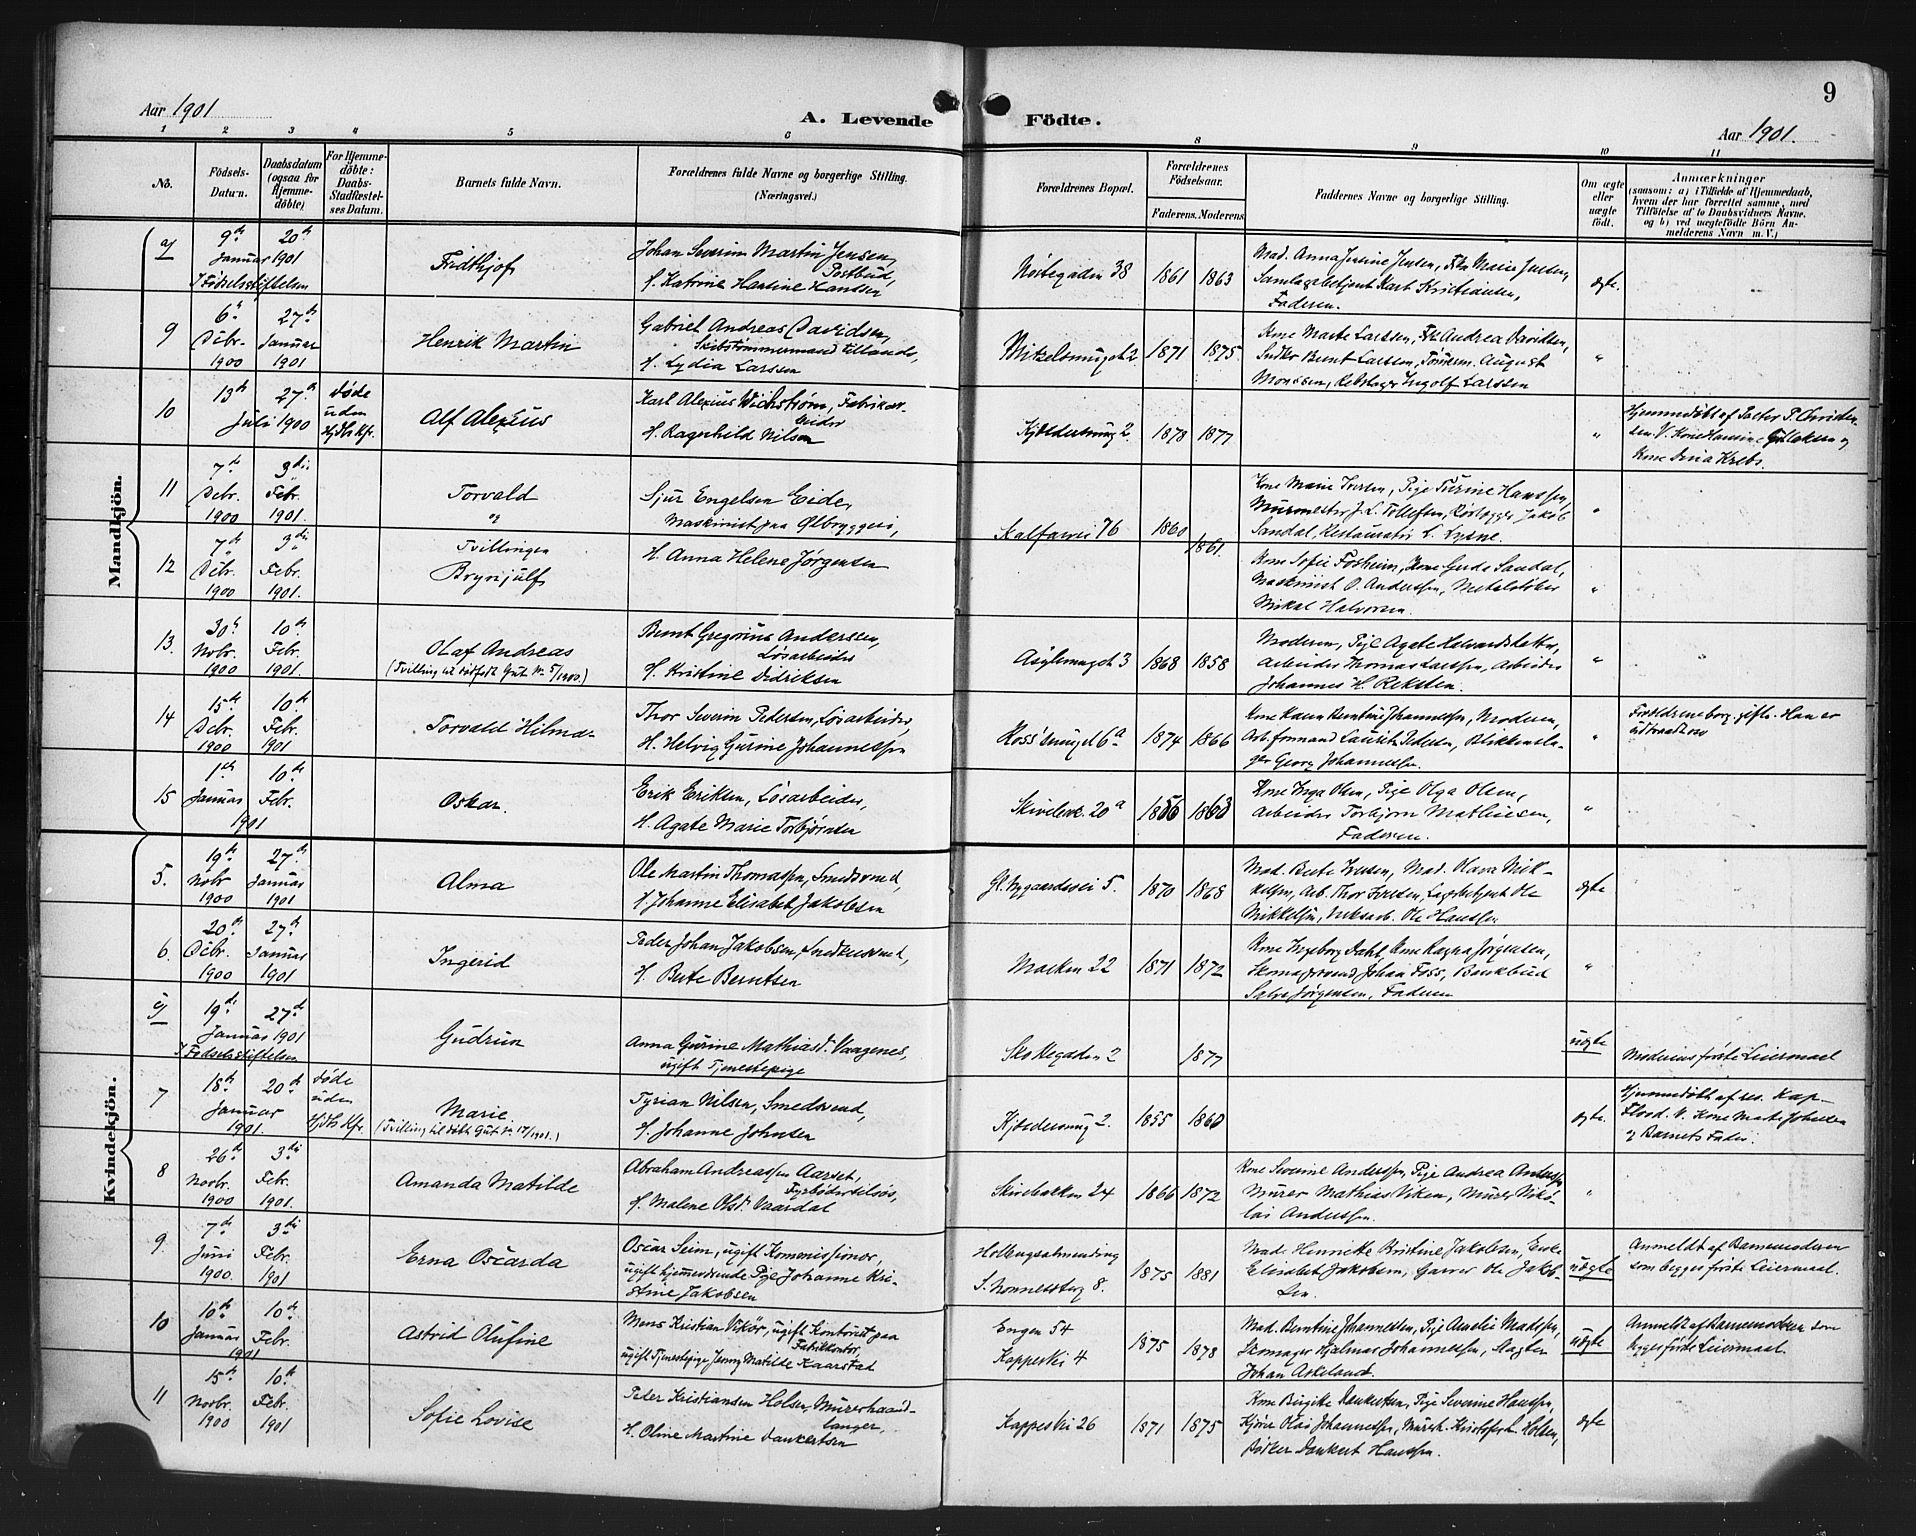 Aar 1901
A. Levende Födte.
9
Aar 1901.
1 2 3 4 5 6 8 9 10 11
No.
Födsels-Datum.
Daabsdatum (ogsaa for Hjemme-döbte)
For Hjemme-döbte: Daabs-Stadfæstel-ses Datum.
Barnets fulde Navn.
Forældrenes fulde Navne og borgerlige Stilling. (Næringsvei.)
Forældrenes Bopæl.
Forældrenes Födselsaar.
Faderens. Moderens.
Faddernes Navne og borgerlige Stilling.
Om ægte eller uægte födt.
Anmærkninger
(saasom: a) i Tilfælde af Hjemmedaab, hvem der har forrettet samme, med Tilföielse af to Daabsvidners Navne. og b) ved uægtefödte Börn An-melderens Navn m. V.)
Mandkjön.
9de Januar 1901
20de
I Fødselsstiftelsen
Fridthjof
Johan Severin Martin Jensen,
Postbud,
H. Katrine Hartine Hanssen
Nøstegaden 38
1861 1863
Mad. Anna Justine Jensen, Frk Marie Jensen,
Samlagsbetjent Karl Kristiansen,
Faderen.
ægte.
9
6te Debr. 1900
27de Januar 1901
Henrik Martin
Gabriel Andreas Davidsen,
Skibstømmermand tillands,
H. Lydia Larssen
1871 1875.
Kone Marte Larssen, Frk Andrea Davidsen,
Sndkr Bernt Larssen, Tømrm. August
Monssen, Rebslager Ingolf Larssen
"
10
13de Juli 1900
27de
Døde uden Hjds Kfr.
Alf Alexius
Karl Alexius Wickstrøm, Fabrikar-
beider
H. Ragnhild Nilsen
Kjøldersmug 2
1878 1877
"
Hjemmedøbt af Pastor P. Christen-
sen. V. Kone Hansine Gulaksen og
Kone Dina Krebs.
11
7de Debr. 1900
3die Febr. 1901.
Torvald
og
Sjur Engelsen Eide,
Maskinist paa Ølbryggeri,
Kalfarvei 76
1860
1861.
Kone Marie Iversen, Pige Turine Hanssen,
Murmester J. L. Tollefsen, Rørlægger Jakob
Sandal, Restauratør L. Lysne.
"
12
7de Debr. 1900
3die Febr. 1901.
Tvillingen
Brynjulf
H. Anna Helene Jørgensen
Kone Sofie Fosheim, Kone Gerda Sandal,
Maskinist O. Anderssen, Metalstøber
Mikal Halvorsen.
"
13.
30te Novbr. 1900
10de Febr. 1901.
Olaf Andreas
(Tvilling til dødfødt Gut No. 5/1900.)
Bernt Gregorius Anderssen,
Løsarbeider
H. Kristine Didriksen
Asylsmuget 3
1868 1858
Moderen, Pige Agate Halvardsdatter,
Arbeider Thomas Larssen, Arbeider
Johannes H. Reksten.
"
14
15de Debr. 1900
10de Febr. 1901
Torvald Hilmar
Thor Severin Pedersen, Løsarbeider,
H. Helvig Gurine Johannessen
1874 1866
Kone Karen Berntine Johannessen, Moderen,
Arb.formand Laurits Pedersen, Blikkensla-
ger Georg Johannessen.
"
Forældrene borg. gifte. Han er
udtraadt
15
1ste Januar 1901
10de Febr.
Oskar.
Erik Eriksen, Løsarbeider,
H. Agate Marie Torbjørnsen
20a
1856 1863
Kone Inga Olsen, Pige Olga Olsen,
Arbeider Torbjørn Mathiesen,
Faderen.
"
Kvindekjön.
5.
19de Novbr 1900
27de Januar 1901
Alma
Ole Martin Thomassen, Smedsvend,
H. Johanne Elisabet Jakobsen
Gl. Nygaardsvei 5.
1870 1868
Mad. Berte Iversen, Mad. Olava Mik-
kelsen, Arb. Thor Iversen, Lagerbetjent Ole
Mikkelsen, Verksarb. Ole Hanssen
ægte
6.
20de Debr. 1900
27de Januar 1901
Ingerid
Peder Johan Jakobsen, Snedkersvend,
H. Berte Berntsen
Marken 22
1871 1872
Kone Ingeborg Dahl, Kone Ragna Jørgensen,
Skomagersvend Johan Foss, Bankbud
Salve Jørgensen, Faderen
"
19de Januar 1901
27de
I Fødselsstiftelsen
Gudrun
Anna Gurine Mathiasd. Vaagenes,
ugift Tjenestepige
Skottegaden 2
1877
uægte
Moderens første Leiermaal
7
18de Januar 1901.
20de
Døde uden Hjds Kfr.
Marie
(Tvilling til døbt Gut No. 17/1901.)
Tyrian Nilsen, Smedsvend,
H. Johanne Johnsen
Kjøldersmug 2.
1855 1860
ægte.
Hjemmedøbt af res. Kap.
Flood. V. Kone Mart. Johnsen
og Barnets Fader.
8
26de Novbr. 1900
3die Febr. 1901.
Amanda Matilde
Abraham Andreassen Aarset,
Fyrbøder tilsøs,
H. Malene Olsdr Vaardal
Skivebakken 24
1866 1872
Kone Severine Anderssen, Pige Andrea Anderssen
Murer Mathias Viken, Murer Niko-
lai Anderssen.
"
9.
7de Juni 1900.
3die Febr. 1901
Erna Oscarda
Oscar Seim, ugift Komissionær,
ugift hjemmeværende Pige Johanne Kri-
stine Jakobsen
Hollengsalmending
S. Nonnesæterg 8.
1875 1881
Mad. Henrikke Kristine Jakobsen, Enke
Elisabet Jakobsen, Garver Ole Jakob-
sen.
uægte
Anmeldt af Barnemoderen
som begges første Leiermaal.
10
10de Januar 1901
10de Febr.
Astrid Olufine
Mons Kristian Vikør, ugift Kontorist paa
Fabrikkontor,
ugift Tjenestepige Jenny Matilde Kaarstad
Engen 54
Kappevei 4
1875 1878
Mad. Berntine Johannessen, Pige Amalie Madssen,
Skomager Hjalmar Johannessen, Slagter
Johan Askeland.
uægte
Anmeldt af Barnemoderen som
begges første Leiermaal.
11
15de Novbr. 1900
10de Febr. 1901
Sofie Lovise
Peder Kristiansen Holsen, Murerhaand-
langer,
H. Oline Martine Dankertsen
Kappevei 26
1871 1875
Kone Birgitte Dankertsen, Pige Severine Hanssen,
Kjører Olai Johannessen, Murerh. Kristofer L. Holsen,
Bødker Dankert Hanssen.
ægte